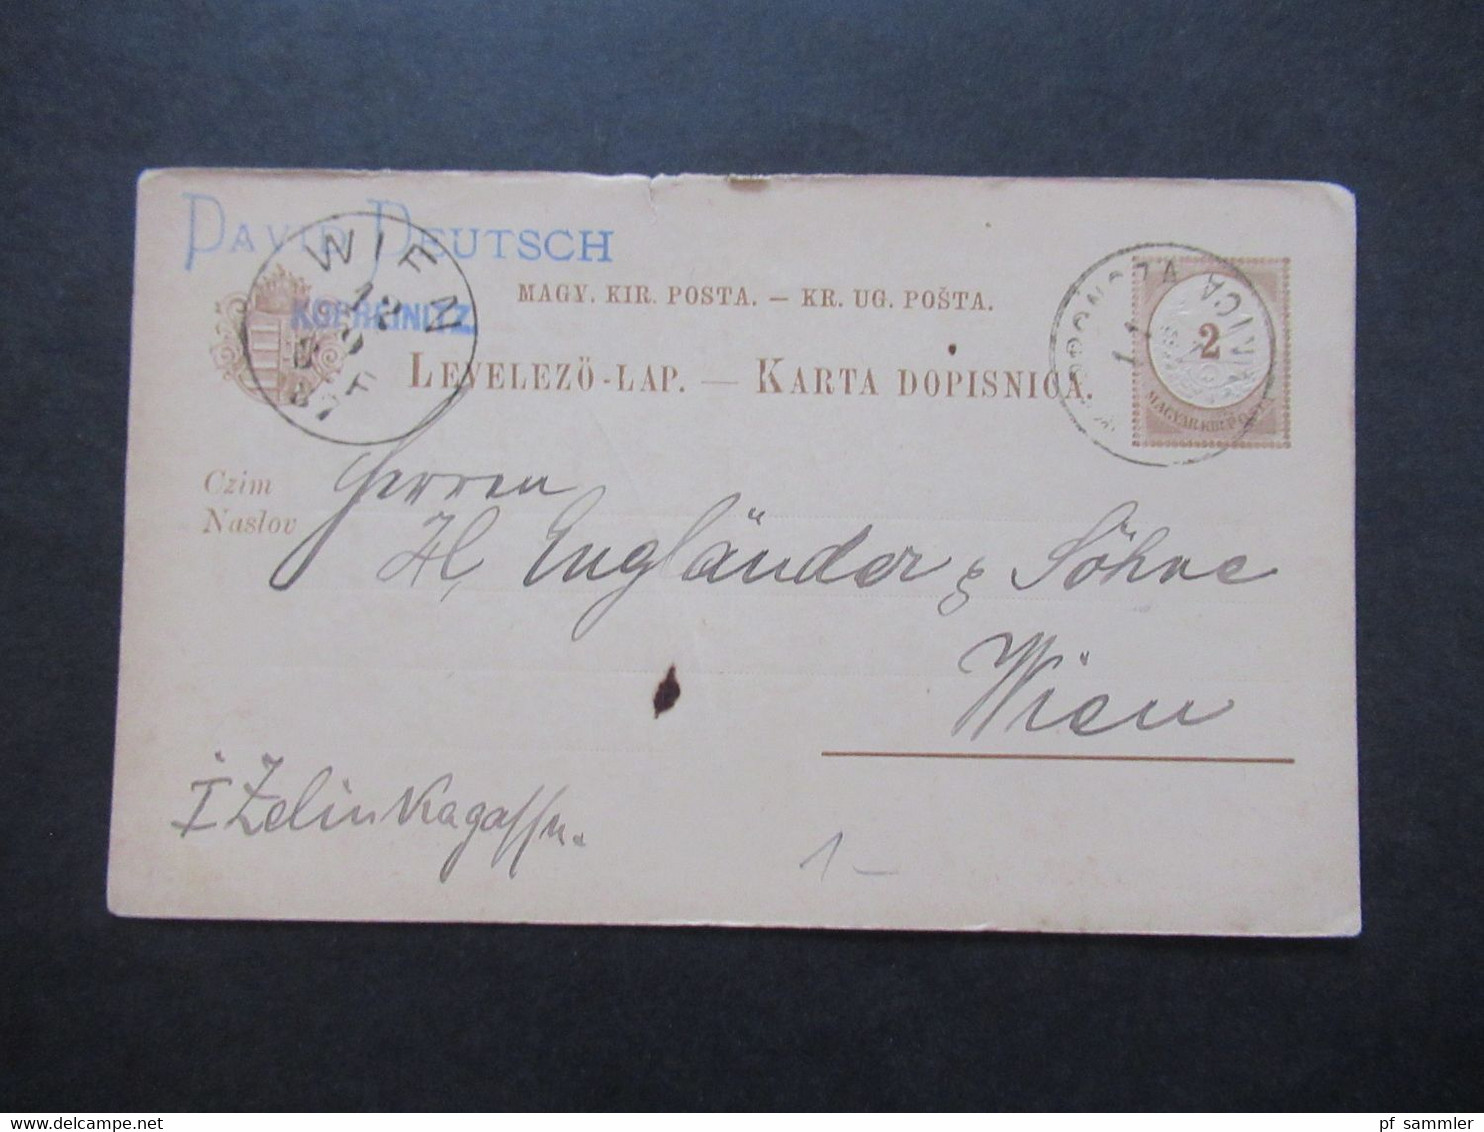 DAVID DEUTSCH
KOPREINITZ
WIEN
MAGY. KIR. POSTA. — KR. UG. POŠTA.
LEVELEZÖ-LAP. — KARTA DOPISNICA.
2
MAGYAR KIR. POSTA
Czim
Naslov
Herren
H. Engländer & Söhne
Wien
I Zelinkagasse.
1 —
www.delcampe.net
pf_sammler